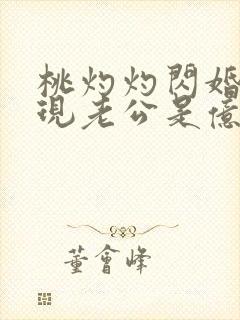 桃灼灼閃婚
現老公是億
董會峰